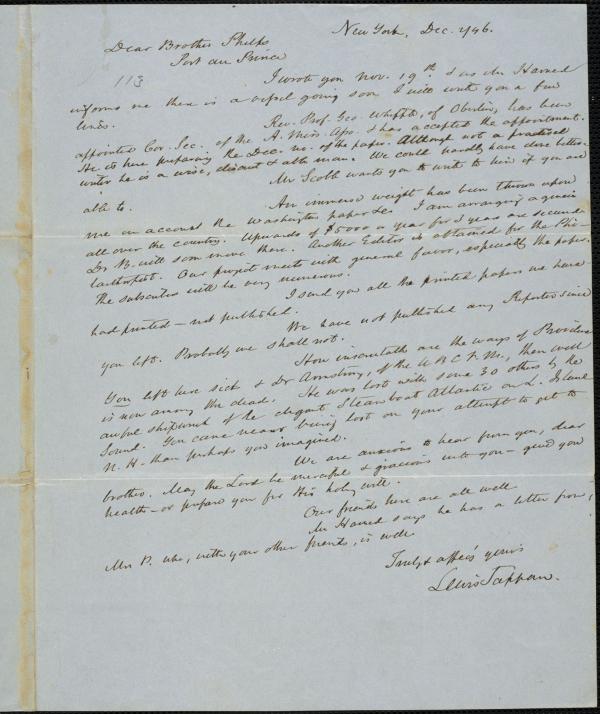 New York, Dec. 2/46.
Dear Brother Phelps
Port au Prince
113
I wrote you Nov. 19th & as Mr Harned
informs me there is a vessel going soon I will write you a few
lines.
Rev. Prof. Geo. Whipple, of Oberlin, has been
appointed Cor. Sec. of the A. Miss. Asso. & has accepted the appointment.
He is here preparing the Dec. no. of the paper. Although not a practised
writer he is a wise, & able man. We could hardly have done better.
Mr Scoble wants you to write to him if you are
able to.
An immense weight has been thrown upon
me on account the Washington paper &c. I am arranging agencies
all over the country. Upwards of $5000 a year for 3 years are secured.
Dr B. will soon move there. Another Editor is obtained for the Phi-
lanthropist. Our project meets with general favor, especially the paper.
The subscribers will be very numerous.
I send you all the printed papers we have
had printed — not published.
We have not published any Reporter since
you left. Probably we shall not.
How inscrutable are the ways of Providence
You left here sick & Dr Armstrong, of the A B C F M., then well
is now among the dead. He was lost with some 30 others by the
awful shipwreck of the elegant Steam boat Atlantic on L. Island
Sound. You came nearer being lost on your attempt to get to
N. H. than perhaps you imagined.
We are anxious to hear from you, dear
brother. May the Lord be merciful & gracious unto you — give you
health — or prepare you for His holy will.
Our friends here are all well
Mr Harned says he has a letter from
Mrs P. who, with your other friends, is well.
Truly & affec'y yours
Lewis Tappan.